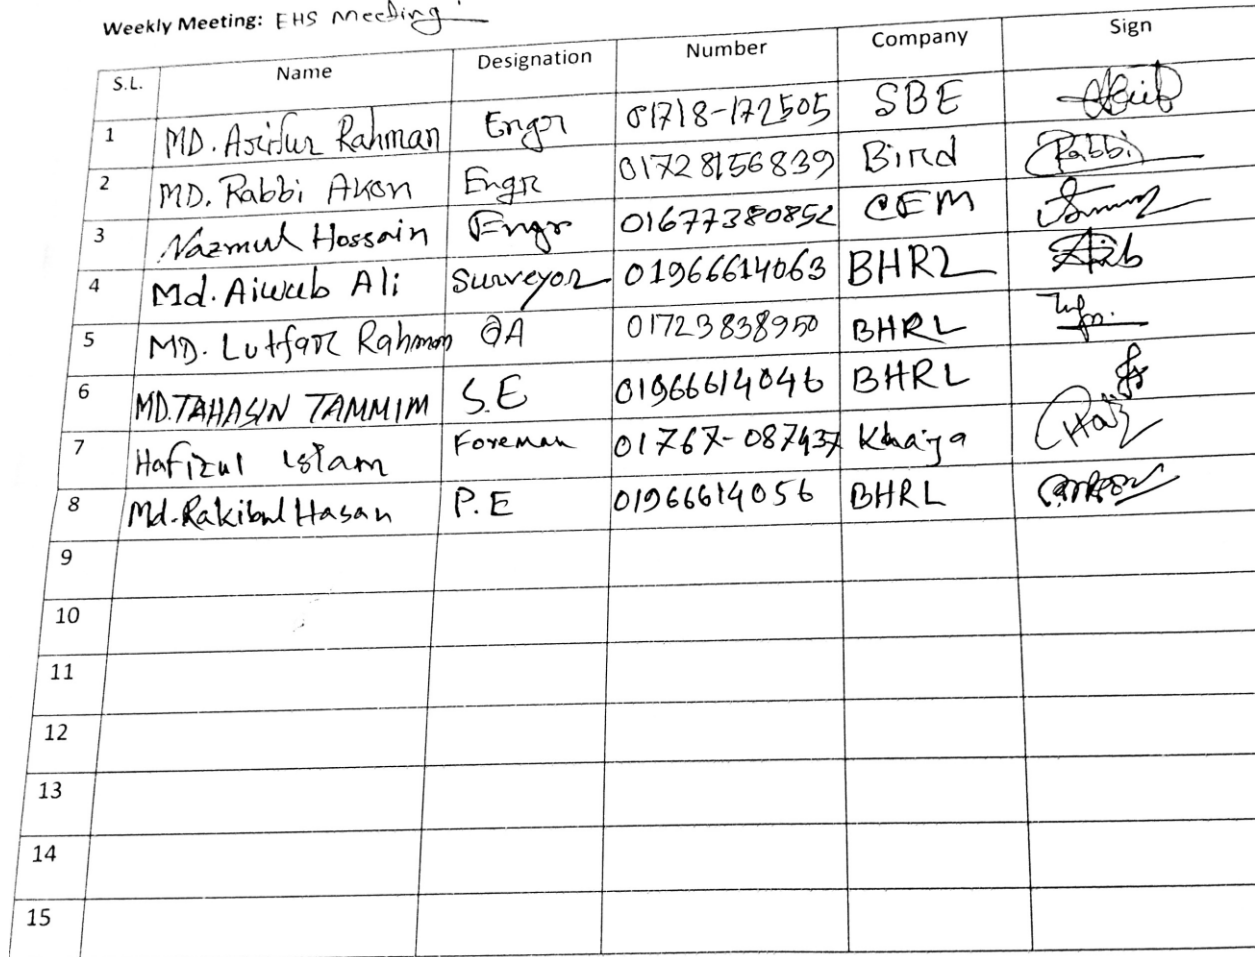 Weekly Meeting: EHS Meeting
S.L. Name Designation Number Company Sign
1 MD. Arifur Rahman Engr 01718-172505 SBE
2 MD. Rabbi Akon Engr 01728156839 Bird Rabbi
3 Nazmul Hossain Engr 01677380852 CEM
4 Md. Aiwub Ali Surveyor 01966614063 BHRL
5 MD. Lutfar Rahman QA 01723838950 BHRL
6 MD.TAHASIN TAMMIM S.E 01966614046 BHRL
7 Hafizul islam Foreman 01767-087437 Khaja
8 Md. Rakibul Hasan P.E 01966614056 BHRL
9
10
11
12
13
14
15